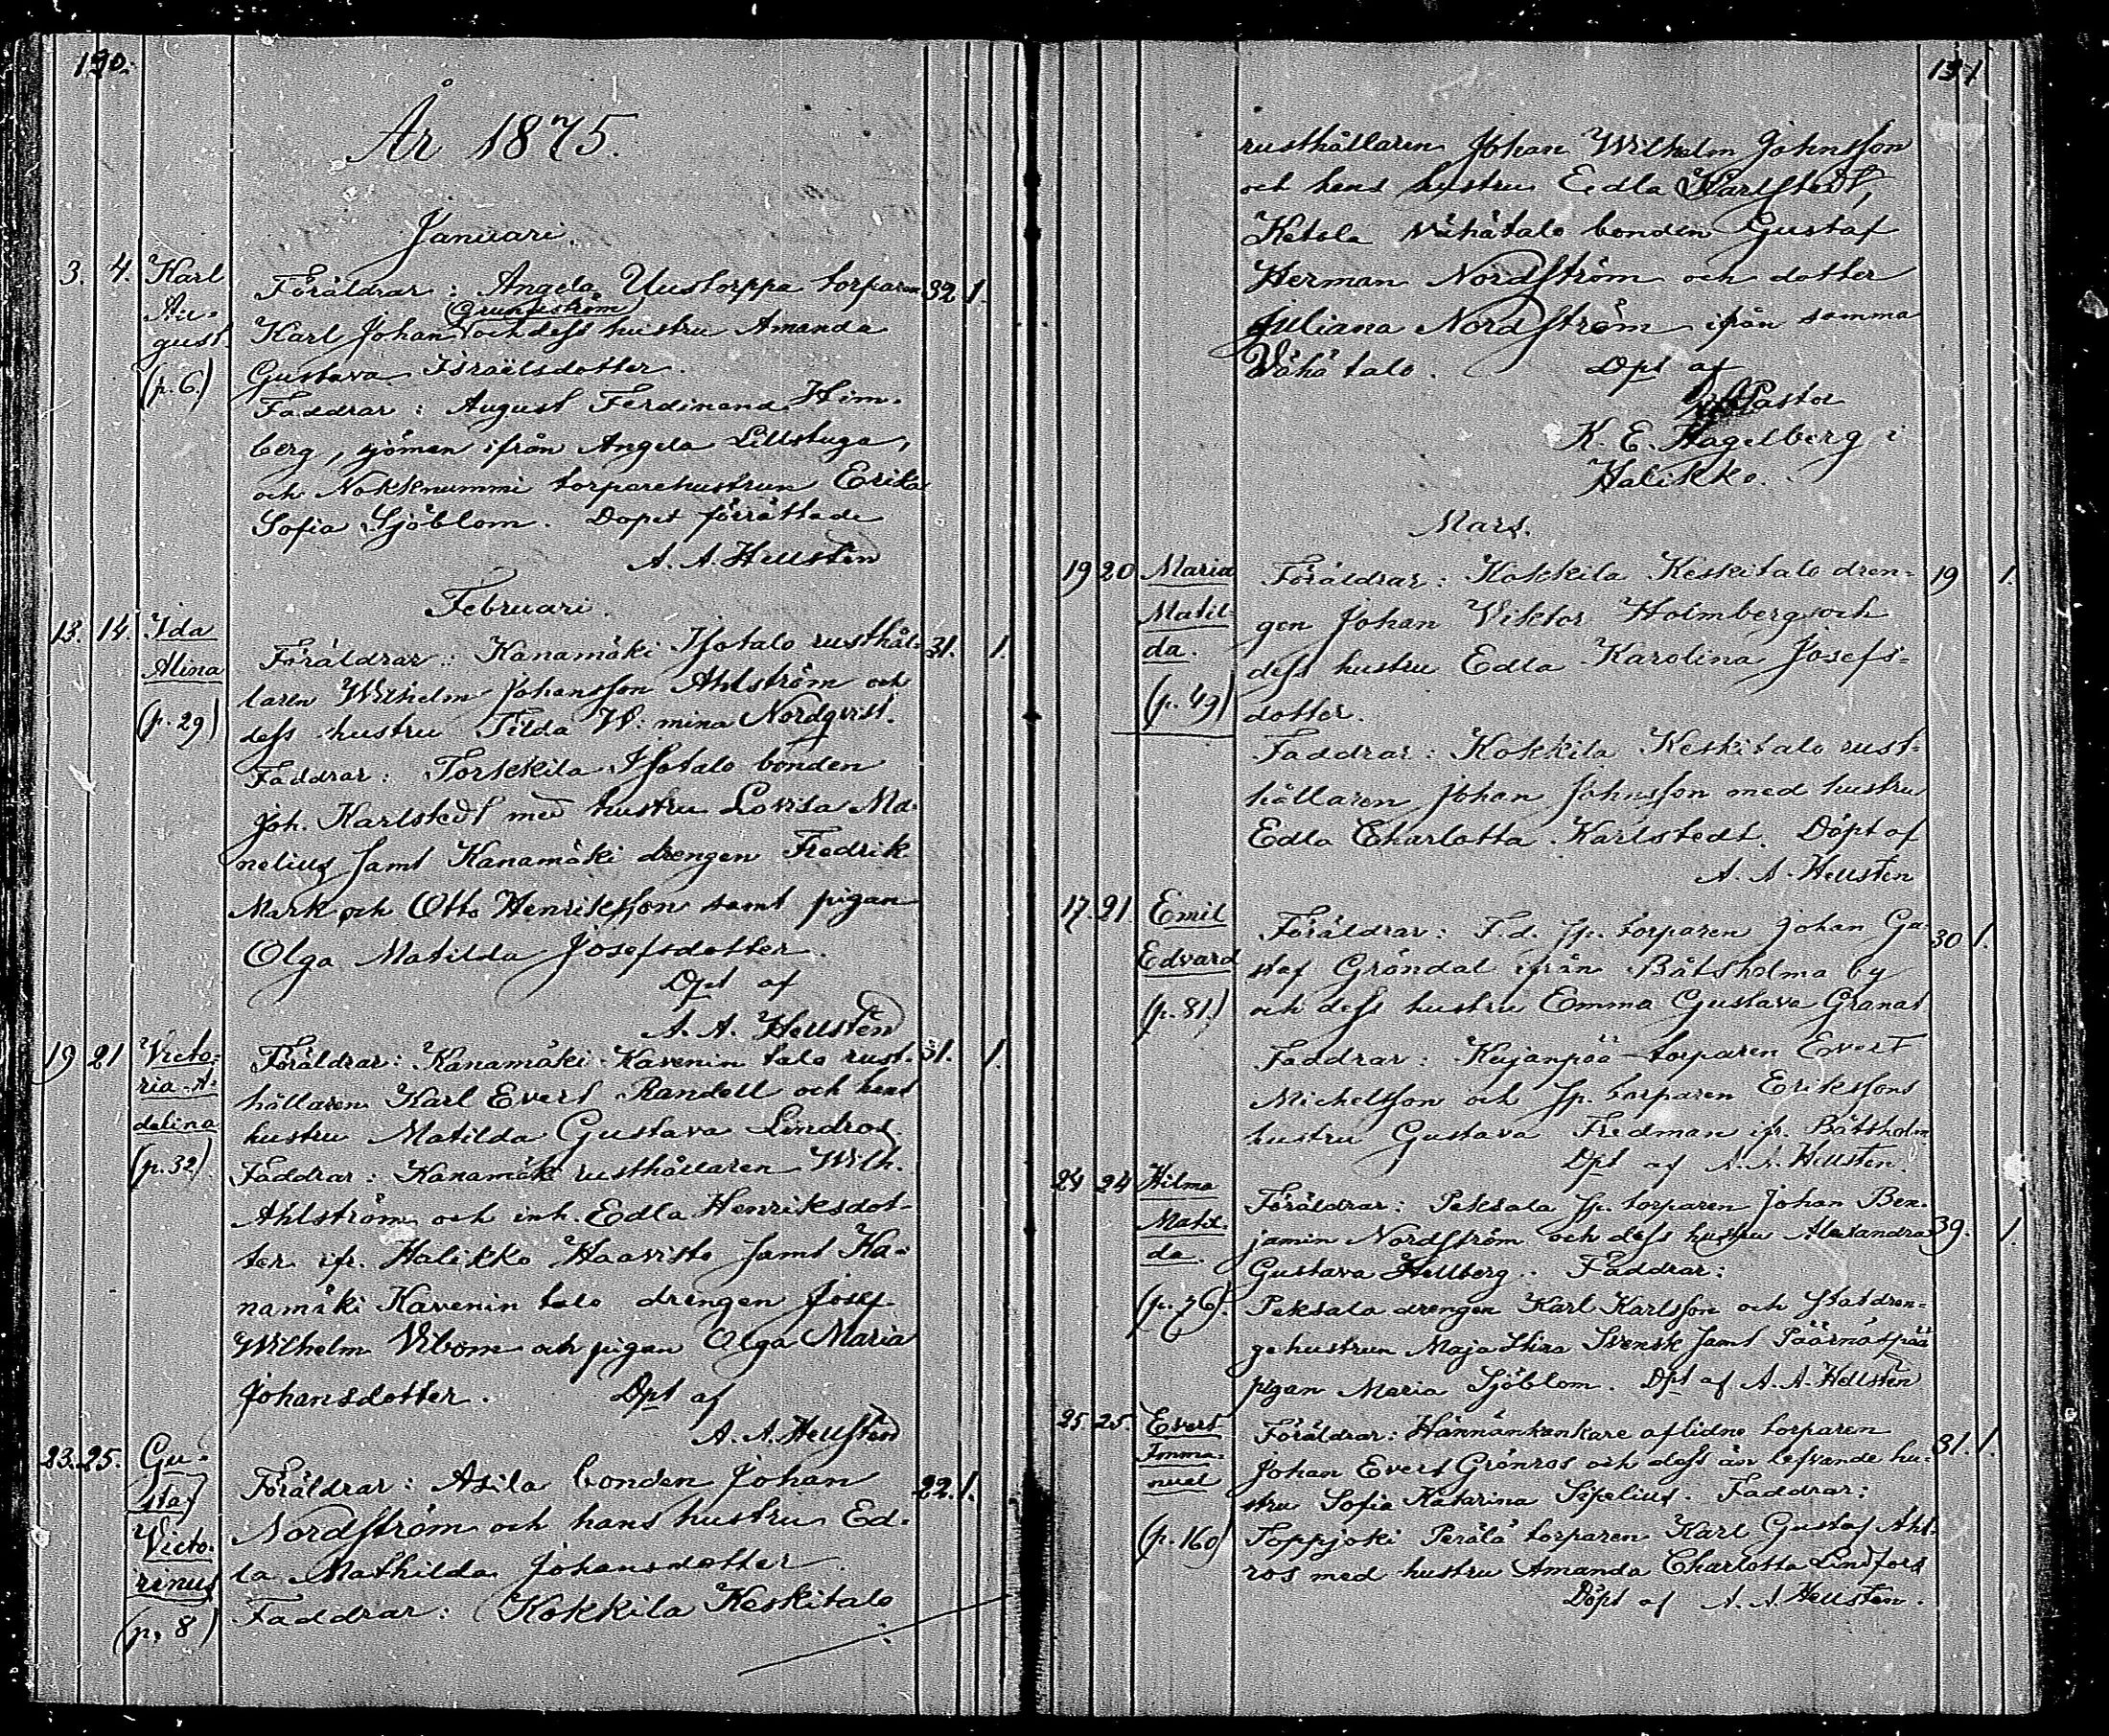 190.
År 1875.
Januari.
3. 4. Karl August (p. 6.) Föräldrar: Angela Uustorppa torparen 32 1.
Grundström
Karl Johan och dess hustru Amanda
Gustava Israëlsdotter.
Faddrar: August Ferdinand Him-
berg, sjöman ifrån Angela Lillstuga,
och Nokknummi torparehustrun Erika
Sofia Sjöblom. Dopet förrättade
A. A. Hellsten
Februari.
13. 14. Ida Alina (p. 29) Föräldrar: Kanamäki Isotalo rusthål- 31. 1.
laren Wilhelm Johansson Ahlström och
dess hustru Tilda W:mina Nordqvist.
Faddrar: Torkkila Isotalo bonden
Joh. Karlstedt med hustru Lovisa Ma-
nelius samt Kanamäki drengen Fredrik
Mark och Otto Henriksson samt pigan
Olga Matilda Josefsdotter.
Dpt af
A. A. Hellsten
19 21 Victoria Adelina (p. 32) Föräldrar: Kanamäki Kavenin talo rust- 31. 1.
hållaren Karl Evert Randell och hans
hustru Matilda Gustava Lindros.
Faddrar: Kanamäki rusthållaren Wilh.
Ahlström och inh. Edla Henriksdot-
ter ifr. Halikko Haavisto samt Ka-
namäki Kavenin talo drengen Josef
Wilhelm Vibom och pigan Olga Maria
Johansdotter. Dpt af
A. A. Hellsten
23. 25. Gustaf Victorinus (p. 8) Föräldrar: Asila bonden Johan 22. 1.
Nordström och hans hustru Ed-
la Mathilda Johansdotter
Faddrar: Kokkila Keskitalo
191
rusthållaren Johan Wilhelm Johnsson
och hans hustru Edla Karlstedt,
Ketola Vähätalo bonden Gustaf
Herman Nordström och dotter
Juliana Nordström ifrån samma
Vähätalo. Dpt af
Pastor
K. E. Hagelberg i
Halikko.
Mars.
19 20 Maria Matilda. (p. 49) Föräldrar: Kokkila Keskitalo dren- 19 1.
gen Johan Viktor Holmberg och
dess hustru Edla Karolina Josefs-
dotter.
Faddrar: Kokkila Keskitalo rust-
hållaren Johan Johnsson med hustru
Edla Charlotta Karlstedt. Döpt af
A. A. Hellsten
17. 21. Emil Edvard (p. 81.) Föräldrar: F. d. sp. torparen Johan Gu- 30 1.
staf Gröndal ifrån Båtsholma by
och dess hustru Emma Gustava Granat
Faddrar: Kujanpää torparen Evert
Michelsson och sp. torparen Erikssons
hustru Gustava Fredman ifr. Båtsholm
Dpt af A. A. Hellsten.
24 24 Hilma Matilda. (p. 76). Föräldrar: Peksala sp. torparen Johan Ben-
jamin Nordström och dess hustru Alexandra 39. 1.
Gustava Hellberg. Faddrar:
Peksala drengen Karl Karlsson och statdren-
gehustrun Maja Stina Svensk samt Päärnäspää
pigan Maria Sjöblom. Dpt af A. A. Hellsten
25. 25. Evert Immanuel (p. 160) Föräldrar: Hännänkankare aflidne torparen 31. 1.
Johan Evert Grönros och dess än lefvande hu-
stru Sofia Katarina Sipelius. Faddrar:
Toppjoki Perälä torparen Karl Gustaf Ahl-
ros med hustru Amanda Charlotta Lindfors
Döpt af A. A. Hellsten.